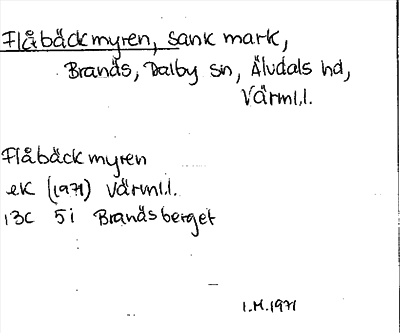 Flåbäckmyren, sank mark,
Branäs, Dalby sn, Älvdals hd,
Värml.l.
Flåbäckmyren
ek (1971) Värml.l.
13C 5i Branäsberget
I.M.1971